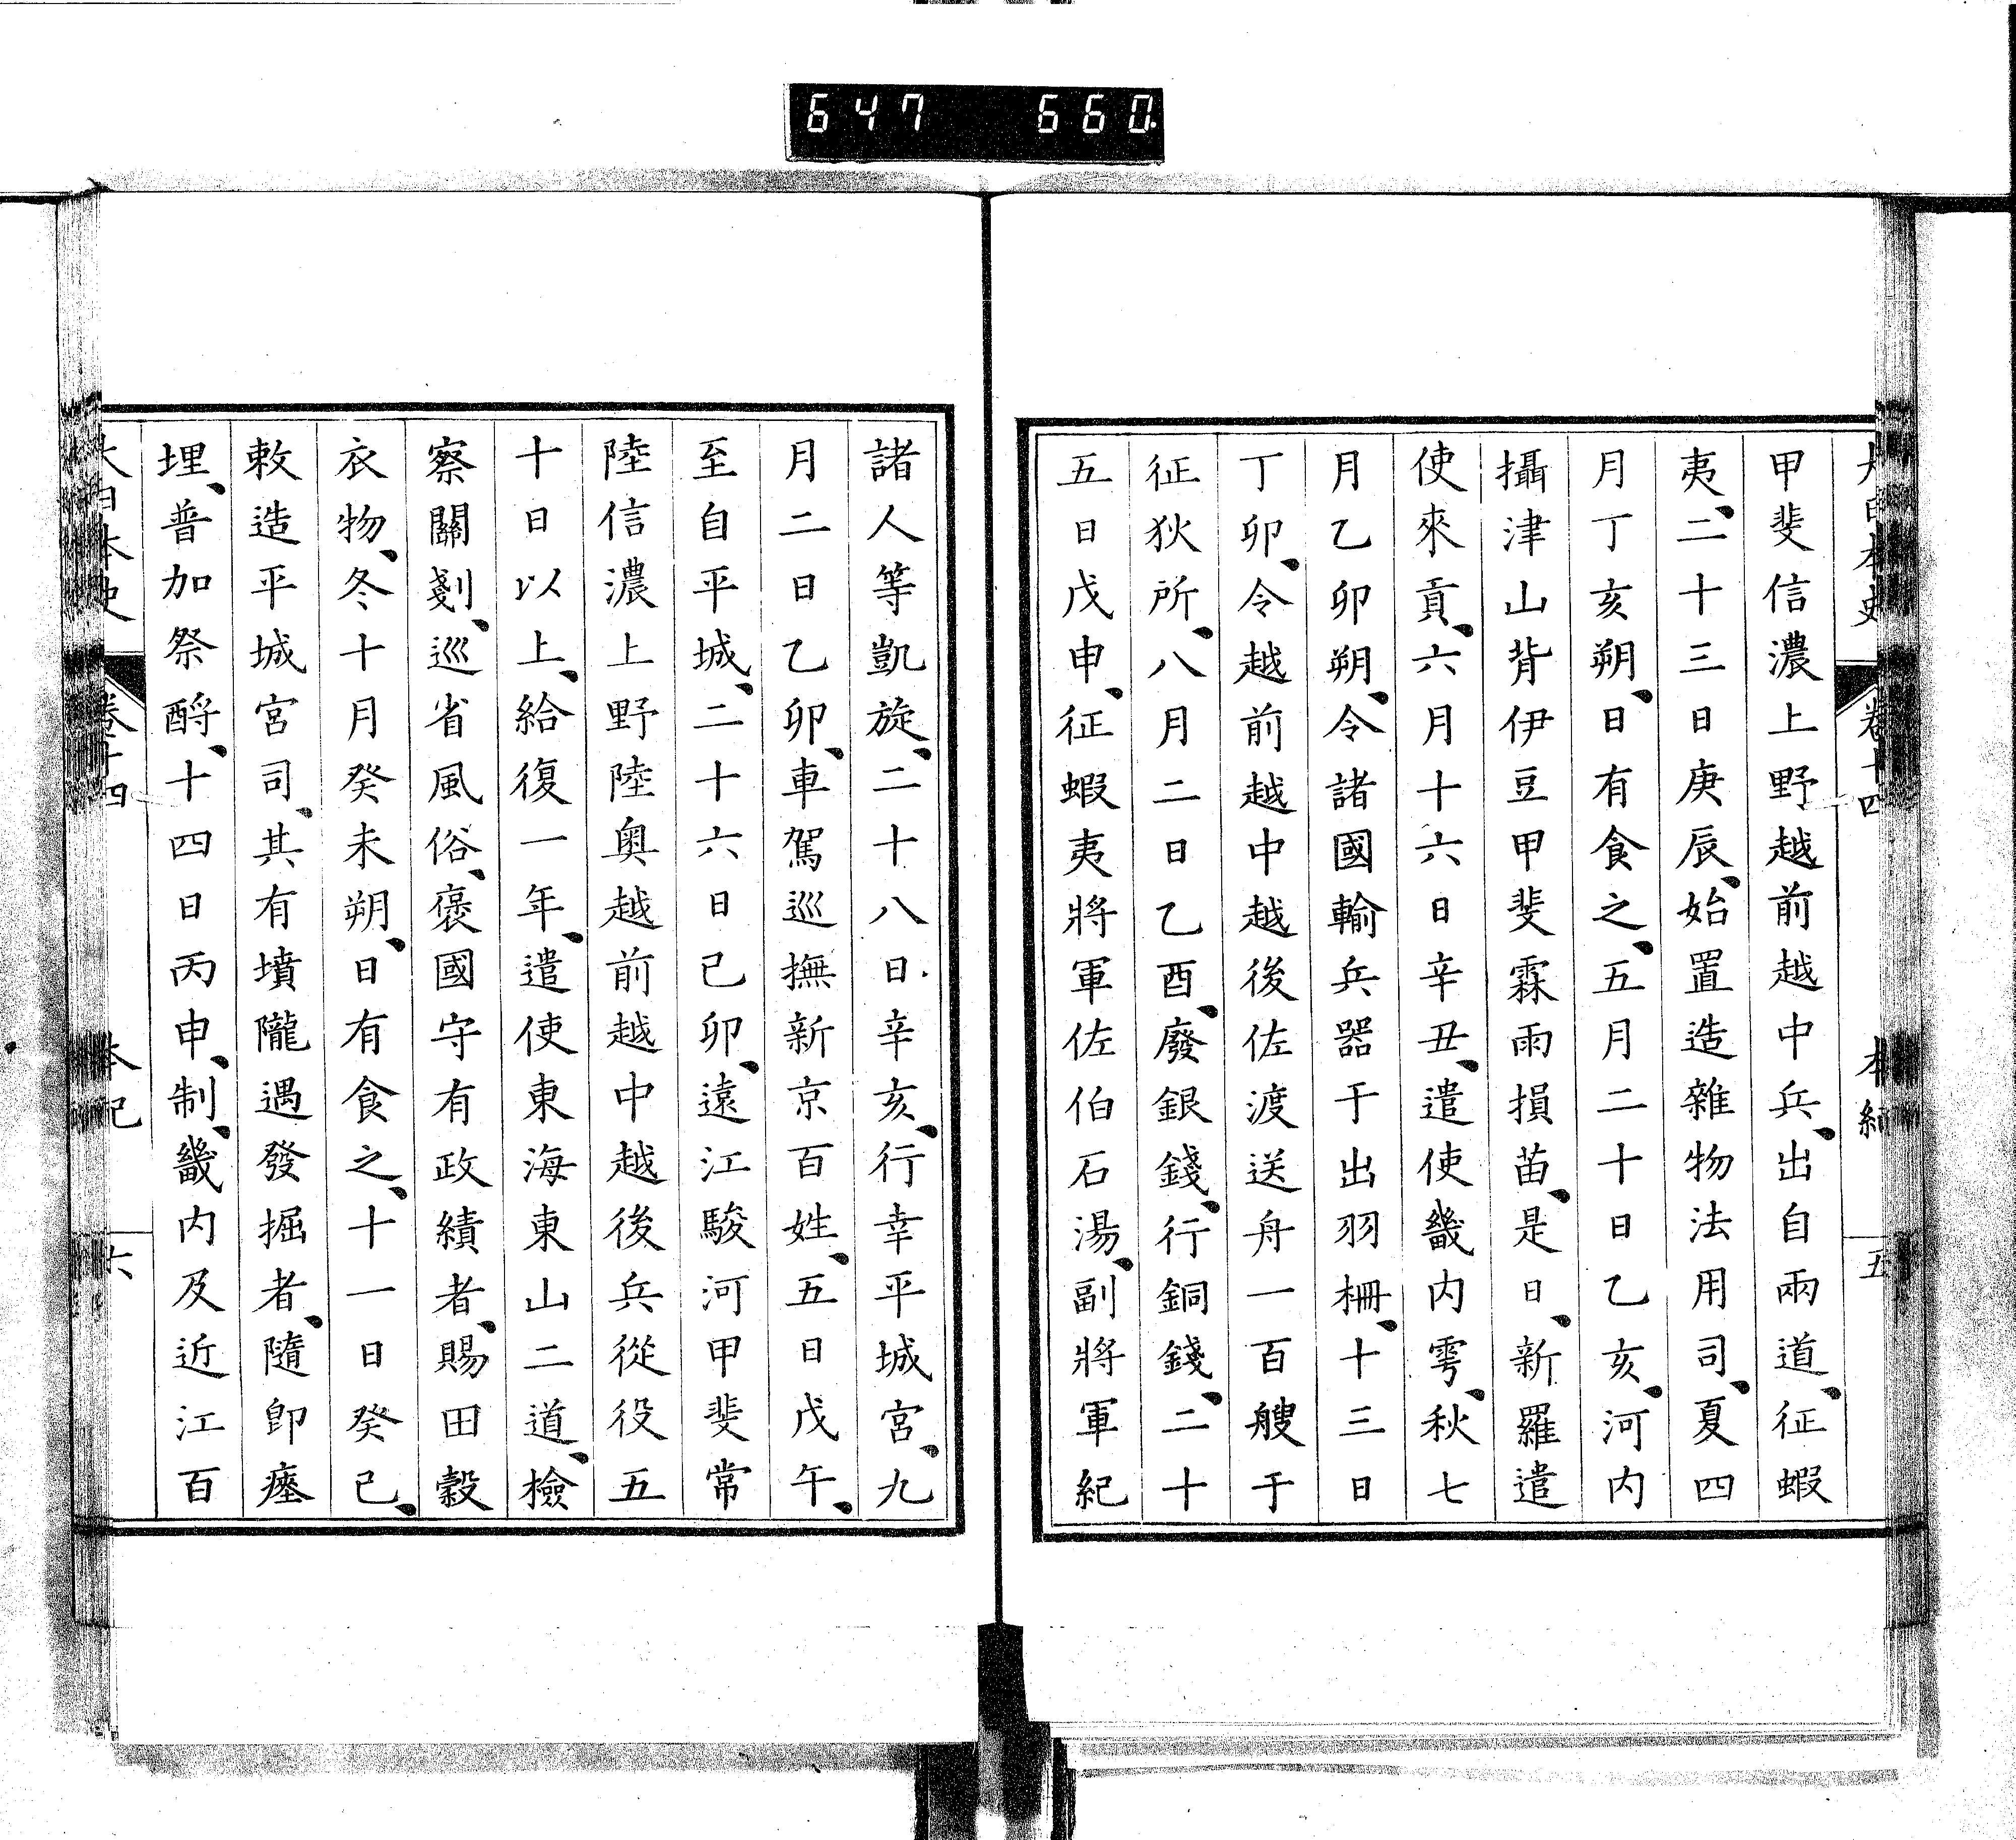 647 660
大日本史 卷十四 本紀 五
甲斐信濃上野越前越中兵、出自兩道、征蝦
夷、二十三日庚辰、始置造雜物法用司、夏四
月丁亥朔、日有食之、五月二十日乙亥、河內
攝津山背伊豆甲斐霖雨損苗、是日、新羅遣
使來貢、六月十六日辛丑、遣使畿內雩、秋七
月乙卯朔、令諸國輸兵器于出羽柵、十三日
丁卯、令越前越中越後佐渡送舟一百艘于
征狄所、八月二日乙酉、廢銀錢、行銅錢、二十
五日戊申、征蝦夷將軍佐伯石湯、副將軍紀
諸人等凱旋、二十八日辛亥、行幸平城宮、九
月二日乙卯、車駕巡撫新京百姓、五日戊午、
至自平城、二十六日己卯、遠江駿河甲斐常
陸信濃上野陸奧越前越中越後兵從役五
十日以上、給復一年、遣使東海東山二道、檢
察關剗、巡省風俗、褒國守有政績者、賜田穀
衣物、冬十月癸未朔、日有食之、十一日癸巳、
敕造平城宮司、其有墳隴遇發掘者、隨卽瘗
埋、普加祭酹、十四日丙申、制、畿內及近江百
大日本史 卷十四 本紀 六